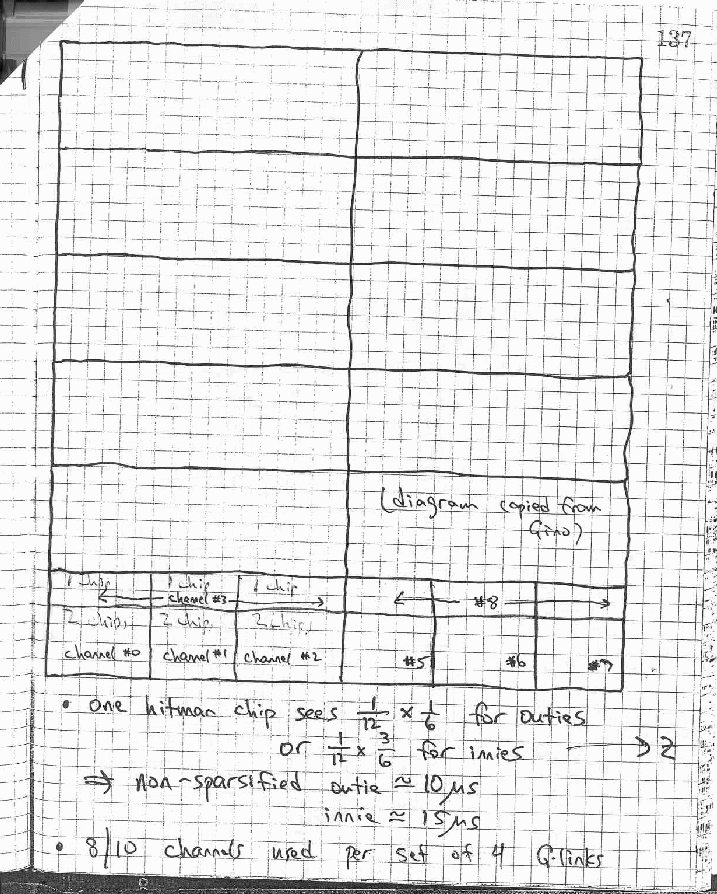 137
(diagram copied from
Gino)
1 chip 1 chip 1 chip
channel #3 #8
2 chips 2 chips 2 chips
channel #0 channel #1 channel #2 #5 #6 #7
• one hitman chip sees 1/12 × 1/6 for outies
or 1/12 × 3/6 for innies → Z
⇒ non-sparsified outie ≈ 10 μs
innie ≈ 15 μs
• 8/10 channels used per set of 4 G-links